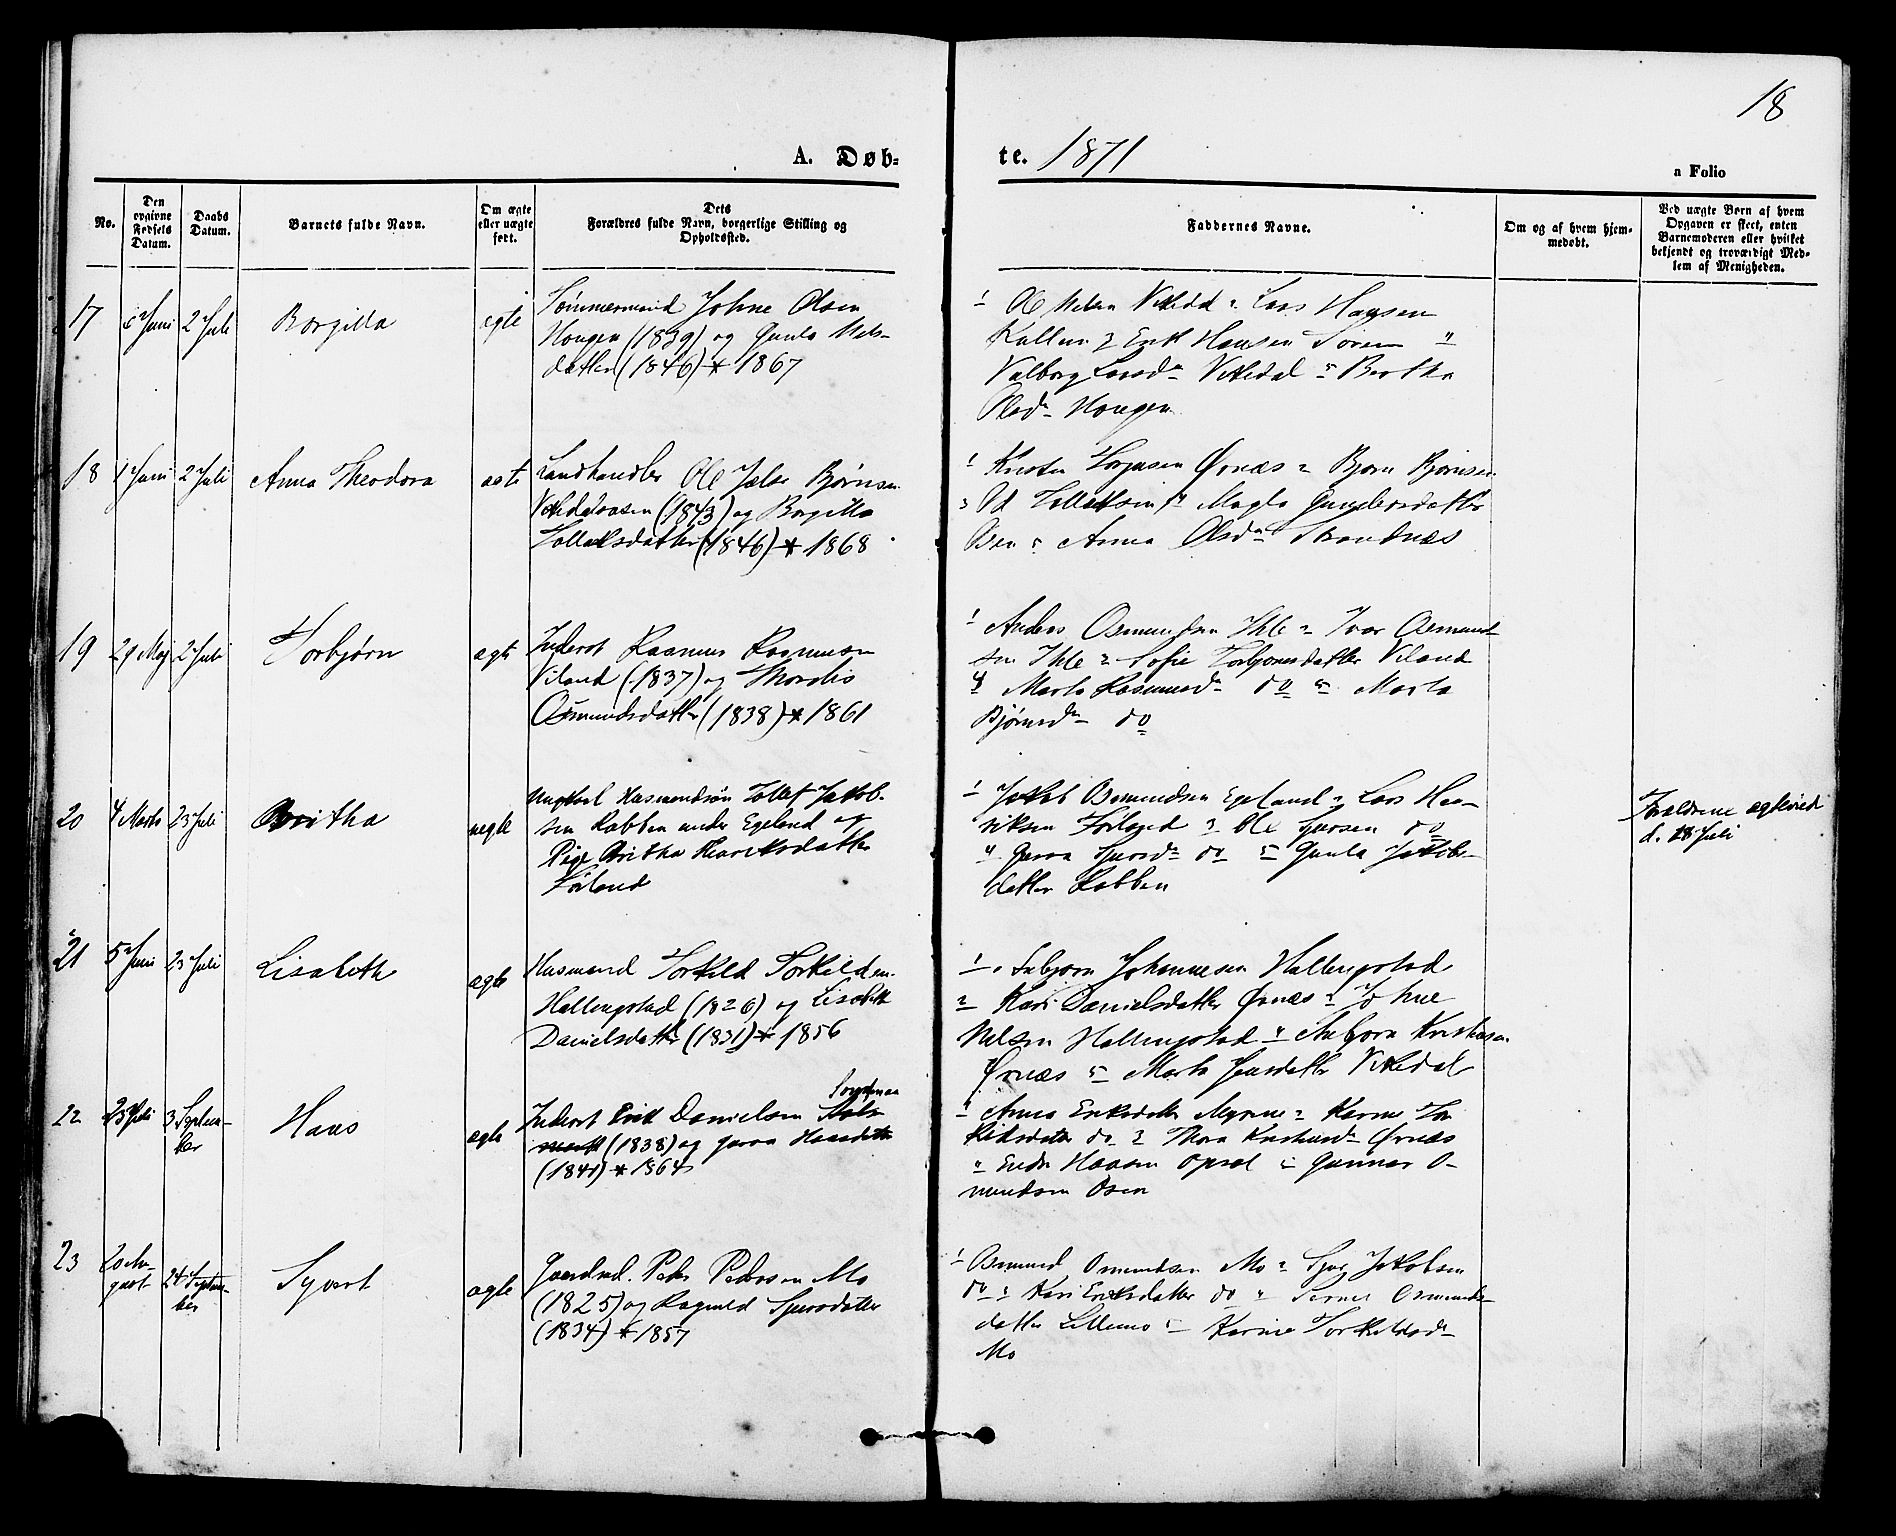 18
A. Døb=
te. 1871
a Folio
No.
Den
opgivne
Fødsels
Datum.
Daabs
Datum.
Barnets fulde Navn.
Om ægte
eller uægte
født.
Dets
Forældres fulde Navn, borgerlige Stilling og
Opholdssted.
Faddernes Navne.
Om og af hvem hjem-
medøbt.
Ved uægte Børn af hvem
Opgaven er skeet, enten
Barnemoderen eller hvilket
bekjendt og troværdigt Med-
lem af Menigheden.
17
Juni
2 Juli
Borgilla
egte
Tømmermand Johne Olsen
Hougen (1839) og Gunla Nels-
datter (1846) * 1867
1 Ole Nelsen Vikedal 2 Lars Hansen
3 Erik Hansen
Valborg Larsdr Vikedal 5 Bertha
Olsdr Hougen
18
1 Juni
2 Juli
Anna Theodora
egte
Landhandler Ole Jelse Bjørnsen
Vikedalsosen (1843) og Borgilla
Tollaksdatter (1846) * 1868
1 Kristen Torjusen Ørnæs 2 Bjørn Bjørnsen
3 Od Tollaksen 4 Magla Gundersdatter
Osen 5 Anna Olsdr Strandnæs
19
29 Maj
2 Juli
Torbjørn
egte
Inderst Rasmus Rasmusen
Viland (1837) og Thordis
Osmundsdatter (1838) * 1861
1 Anders Osmundsen Ihle 2 Ivar Osmund-
sen Ihle 3 Sofie Torbjørnsdatter Viland
4 Marta Rasmusdr do 5 Marta
Bjørnsdr do
20
4 Marts
23 Juli
Britha
uegte
Ungkarl Husmandssøn Tollef Jakob-
sen Rabben under Egeland og
Pige Britha Henriksdatter
Førland
1 Jakob Osmundsen Egeland 2 Lars Hen-
riksen Førland 3 Ole Sjursen do
4 Gurva Sjursdr do 5 Gunla Jakobs-
datter Rabben
Forældrene egteviede
d. 18 Juli
21
5 Juni
23 Juli
Lisabeth
egte
Husmand Torkild Torkildsen
Hallingstad (1826) og Lisabeth
Danielsdatter (1831) * 1856
1 Johannesen Hallingstad
2 Kari Danielsdatter Ørnæs 3 Johne
Nelsen Hallingstad 4 Asbjørn Kristensen
Ørnæs 5 Marta Jensdatter Vikedal
22
23 Juli
3 Septem-
ber
Hans
egte
Inderst Erik Danielsen
(1838) og Gurva Hansdatter
(1841) * 1864
1 Anna Eriksdatter Myrene 2 Karine Tor-
kildsdatter do 3 Thora Kristensdr Ørnæs
4 Endre Hansen Opsal 5 Gunnar O-
mundsen Osen
23
20 Au-
gust
24 Septem-
ber
Syvert
egte
Gaardmd. Peder Pedersen Mo
(1825) og Ragnild Sjursdatter
(1834) * 1857
1 Osmund Osmundsen Mo 2 Sjur Jakobsen
do 3 Kari Eriksdatter do 4 Osmunds-
datter Lillemo 5 Karine Torkildsdr
Mo